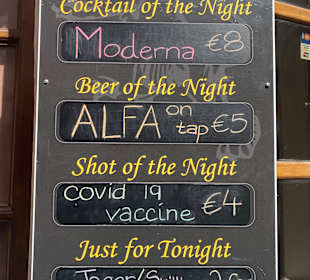 Cocktail of the Night
Moderna €8
Beer of the Night
ALFA on tap €5
Shot of the Night
covid 19
vaccine €4
Just for Tonight